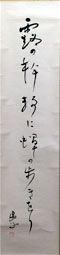 露の幹静に蝉の歩きをり